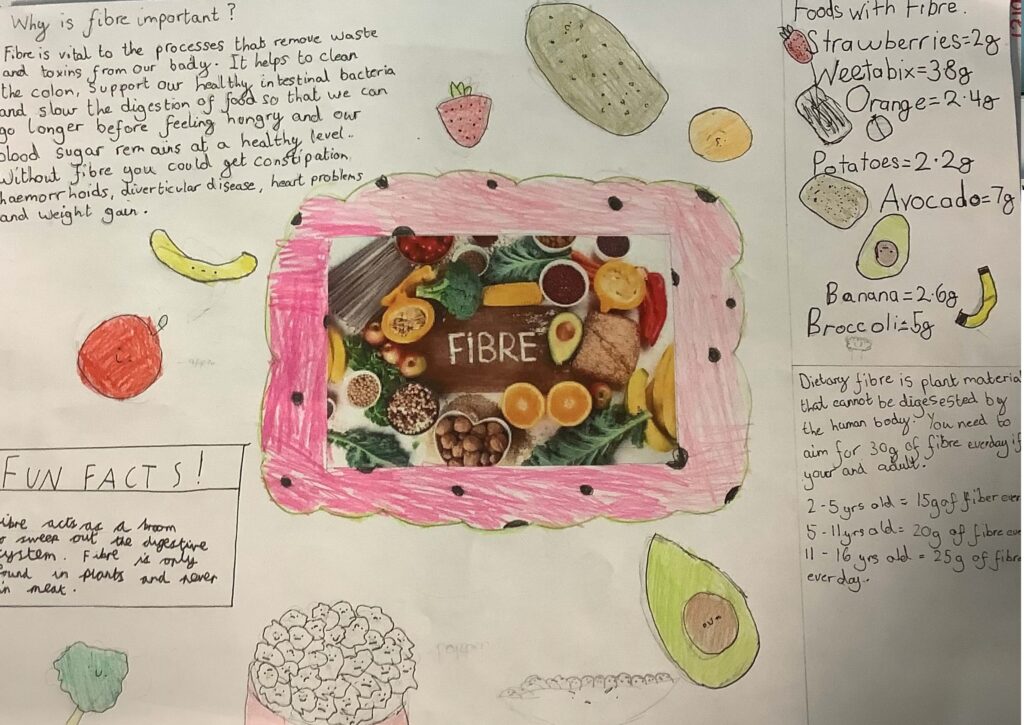 Why is fibre important?
Fibre is vital to the processes that remove waste
and toxins from our body. It helps to clean
the colon, support our healthy intestinal bacteria
and slow the digestion of food so that we can
go longer before feeling hungry and our
blood sugar remains at a healthy level..
Without fibre you could get constipation,
haemorrhoids, diverticular disease, heart problems
and weight gain.
FIBRE
FUN FACTS!
ibre acts as a broom
o sweep out the digestive
system. Fibre is only
ound in plants and never
in meat.
Foods with Fibre.
Strawberries=2g
Weetabix=38g
Orange=2.4g
Potatoes=2.2g
Avocado=7g
Banana=2.6g
Broccoli=5g
Dietary fibre is plant material
that cannot be digesested by
the human body. You need to
aim for 30g of fibre everday if
your and adult.
2-5yrs old = 15g of fiber ever
5-11yrs old= 20g of fibre eve
11-16 yrs old = 25g of fibre
everday..